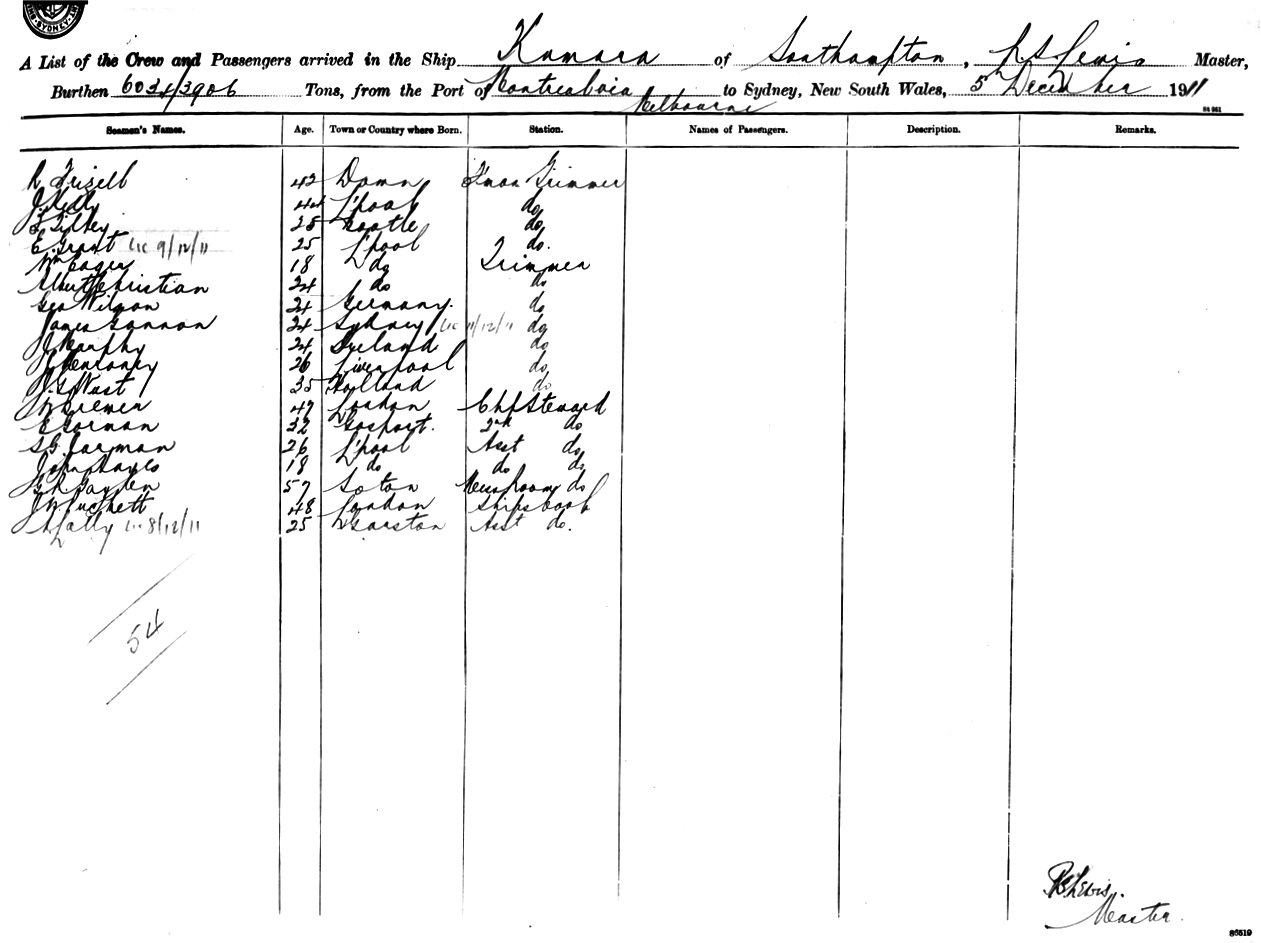 SYDNEY
A List of the Crew and Passengers arrived in the Ship Kumara of Southampton, Lewis Master,
Burthen 6034/3906 Tons, from the Port of Montreal via Melbourne to Sydney, New South Wales, 5th December 1911
Seamen's Names. Age. Town or Country where Born. Station. Names of Passengers. Description. Remarks.
R Frizell 42 Down Fman Trimmer
J Kelly 44 L'pool do
25 Bootle do
E. Grant 9/12/11 25 L'pool do.
Wm Eager 18 do Trimmer
Albert Christian 24 do do
Geo Wilson 24 Germany. do
James Gannon 24 Sydney 11/12/11 do
J Murphy 24 Ireland do
26 Liverpool do
West 35 Holland do
47 London Chf Steward
E Gorman 32 Gosport. 2nd do
S.G. Jarman 26 L'pool Asst do
John 18 do do do
57 So'ton Messroom do
48 London Ships Cook
Lally 8/12/11 25 Garston Asst do.
54
Lewis.
Master.
86519